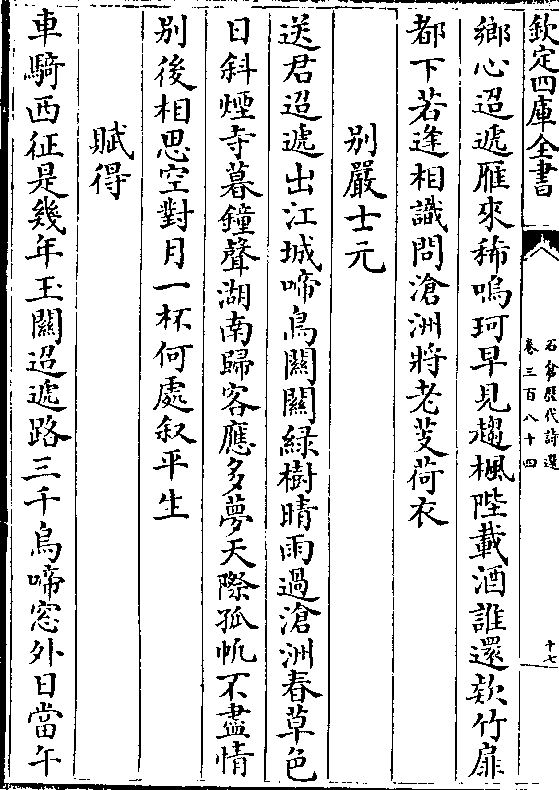 欽定四庫全書
石倉歷代詩選
卷三百八十四
十七
鄉心迢遞雁來稀鳴珂早見趨楓陛載酒誰還欵竹扉
都下若逢相識問滄洲將老芰荷衣
别嚴士元
送君迢遞出江城啼鳥關關綠樹晴雨過滄洲春草色
日斜煙寺暮鐘聲湖南歸客應多夢天際孤帆不盡情
别後相思空對月一杯何處叙平生
賦得
車騎西征是幾年玉關迢遞路三千鳥啼窓外日當午